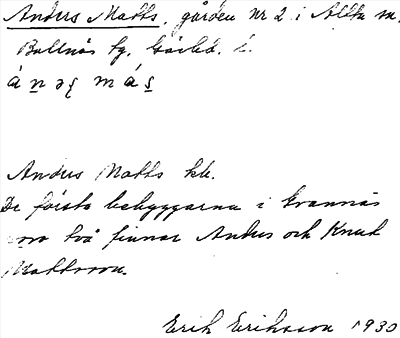 Anders Matts, gården nr 2 i Alfta sn.
Bollnäs tg.
á n ə ʂ m á s
Anders Matts kb.
De första bebyggarna i Grannäs
voro två finnar Anders och Knut
Mattsson.
Erik Eriksson 1930